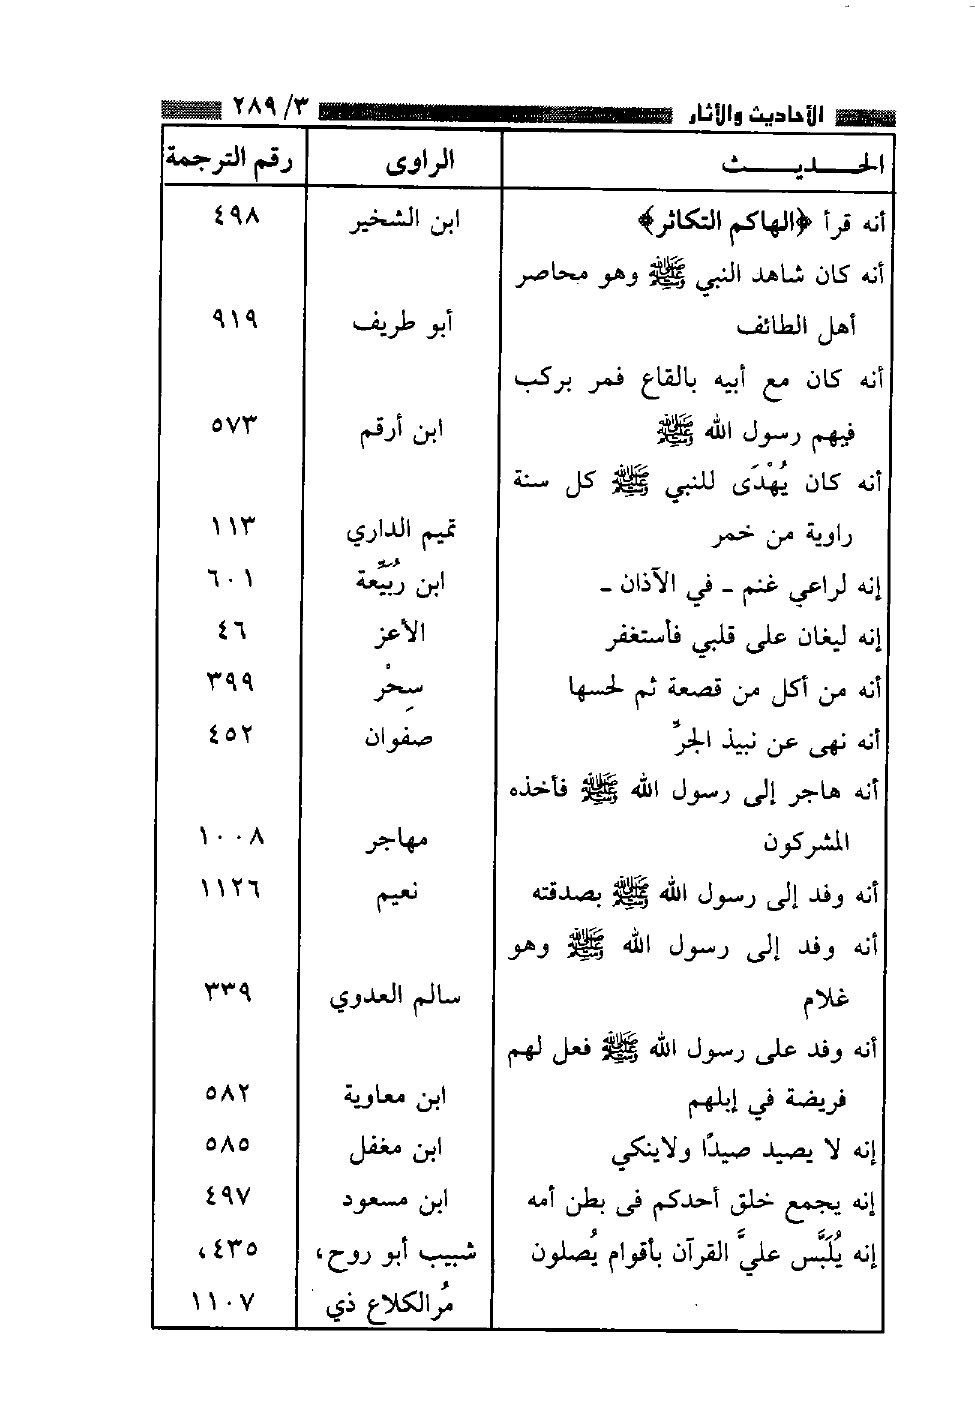 الأحاديث والأثار ٣/ ٢٨٩
الحـــديـــث الراوى رقم الترجمة
أنه قرأ ﴿الهاكم التكاثر﴾ ابن الشخير ٤٩٨
أنه كان شاهد النبي ﷺ وهو محاصر
أهل الطائف أبو طريف ٩١٩
أنه كان مع أبيه بالقاع فمر بركب
فيهم رسول الله ﷺ ابن أرقم ٥٧٣
أنه كان يُهْدَى للنبي ﷺ كل سنة
راوية من خمر تميم الداري ١١٣
إنه لراعي غنم ـ في الآذان ـ ابن رُبَيِّعة ٦٠١
إنه ليغان على قلبي فأستغفر الأعز ٤٦
أنه من أكل من قصعة ثم لحسها سِحْر ٣٩٩
أنه نهى عن نبيذ الجرِّ صفوان ٤٥٢
أنه هاجر إلى رسول الله ﷺ فأخذه
المشركون مهاجر ١٠٠٨
أنه وفد إلى رسول الله ﷺ بصدقته نعيم ١١٢٦
أنه وفد إلى رسول الله ﷺ وهو
غلام سالم العدوي ٣٣٩
أنه وفد على رسول الله ﷺ فعل لهم
فريضة في إبلهم ابن معاوية ٥٨٢
إنه لا يصيد صيدًا ولاينكي ابن مغفل ٥٨٥
إنه يجمع خلق أحدكم فى بطن أمه ابن مسعود ٤٩٧
إنه يُلَبَّس عليَّ القرآن بأقوام يُصلون شبيب أبو روح، ٤٣٥،
مُرالكلاع ذي ١١٠٧